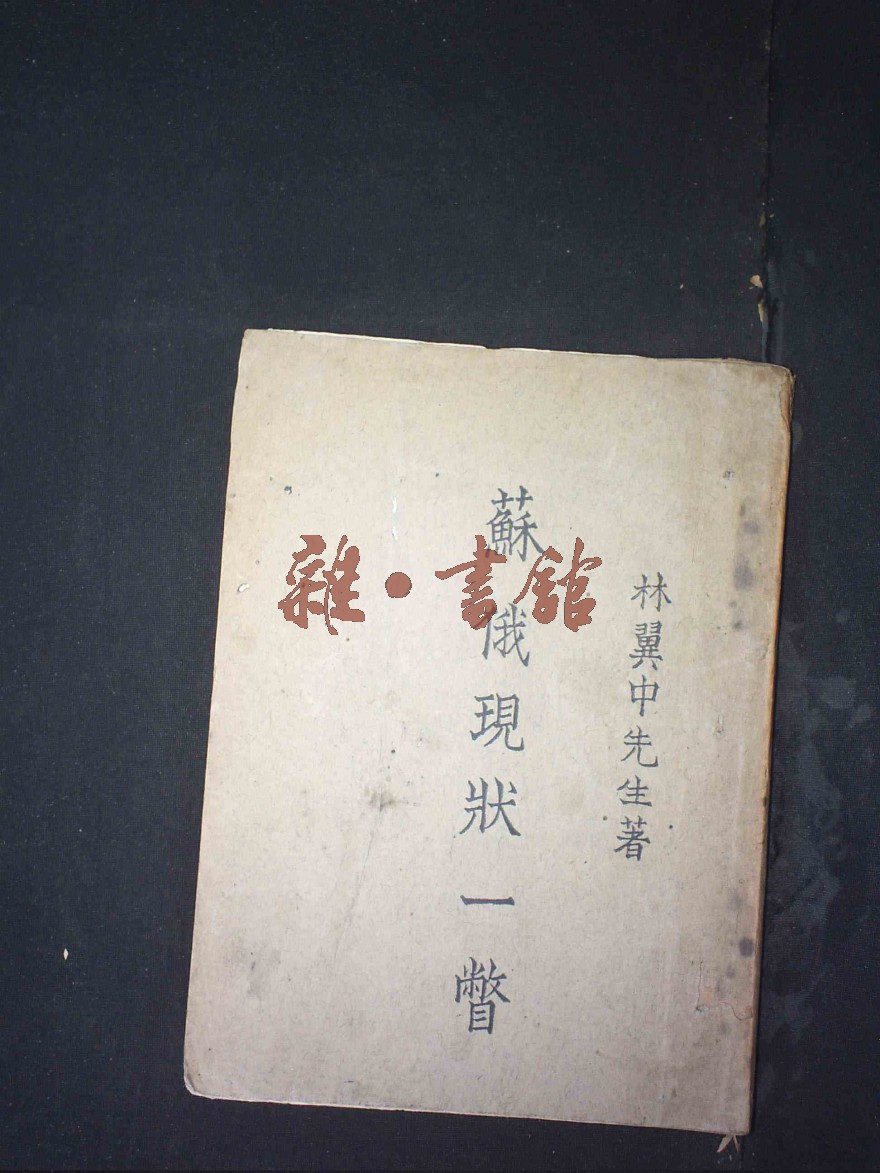 林翼中先生著
蘇俄現狀一瞥
雜·書館